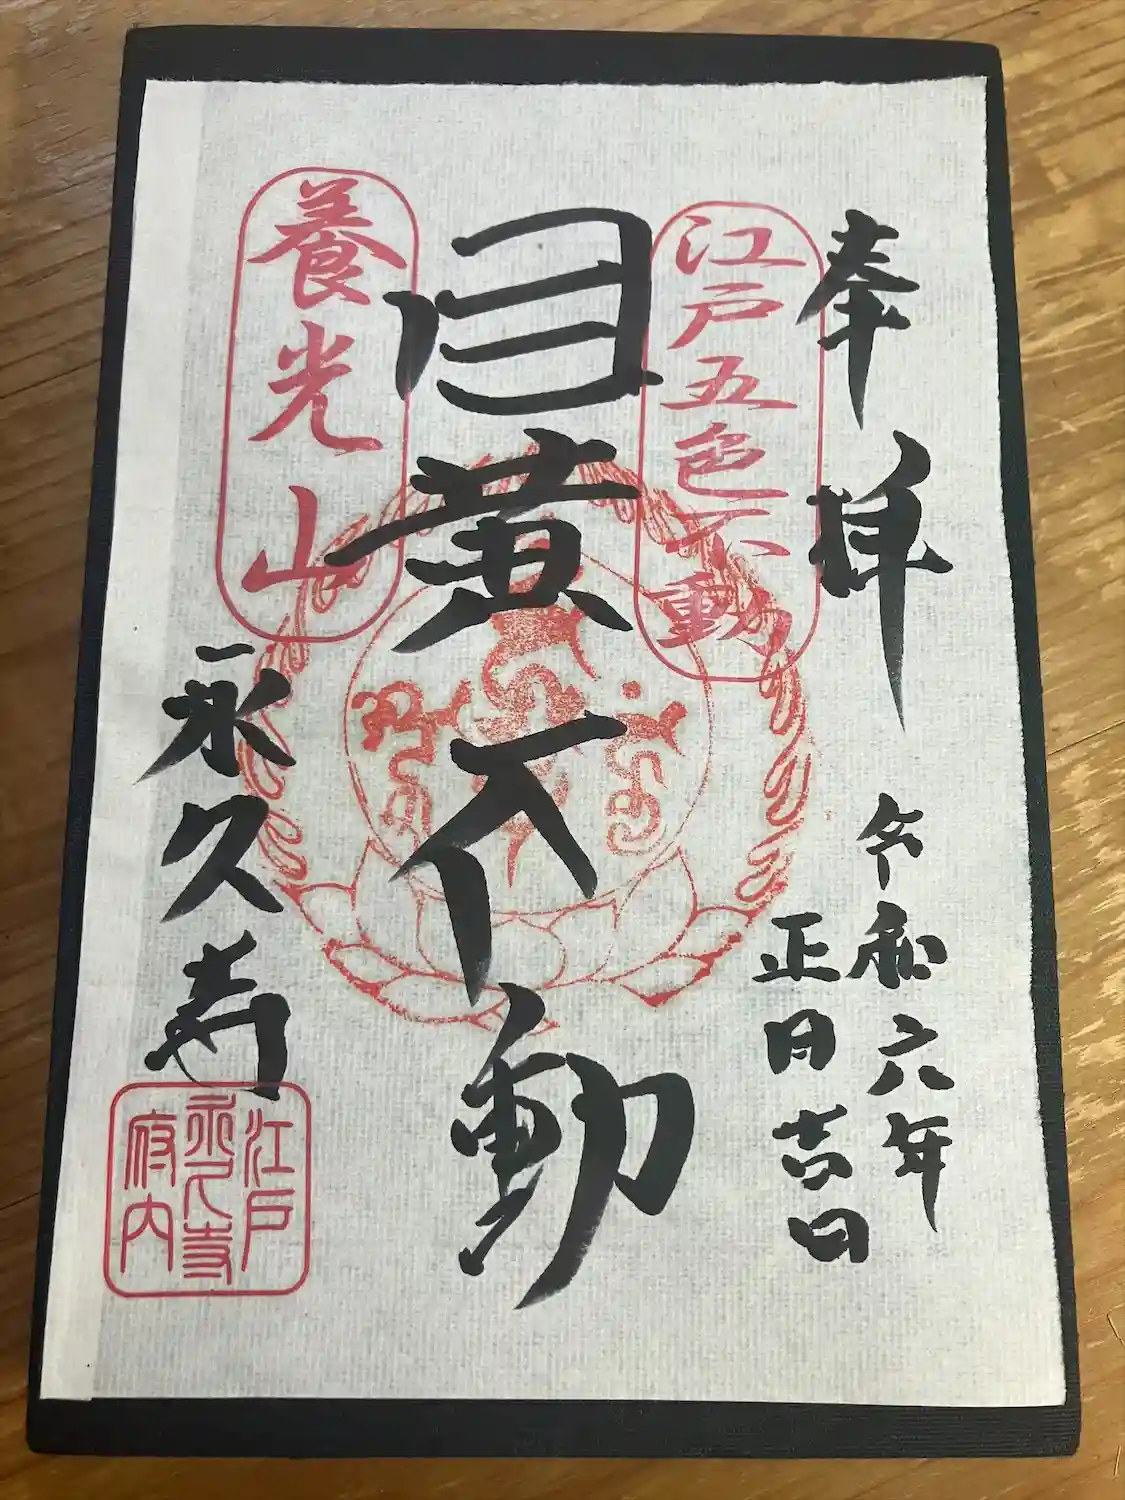 奉拝
令和六年
正月吉日
江戸五色不動
目黄不動
養光山
永久寺
江戸
永久寺
府内